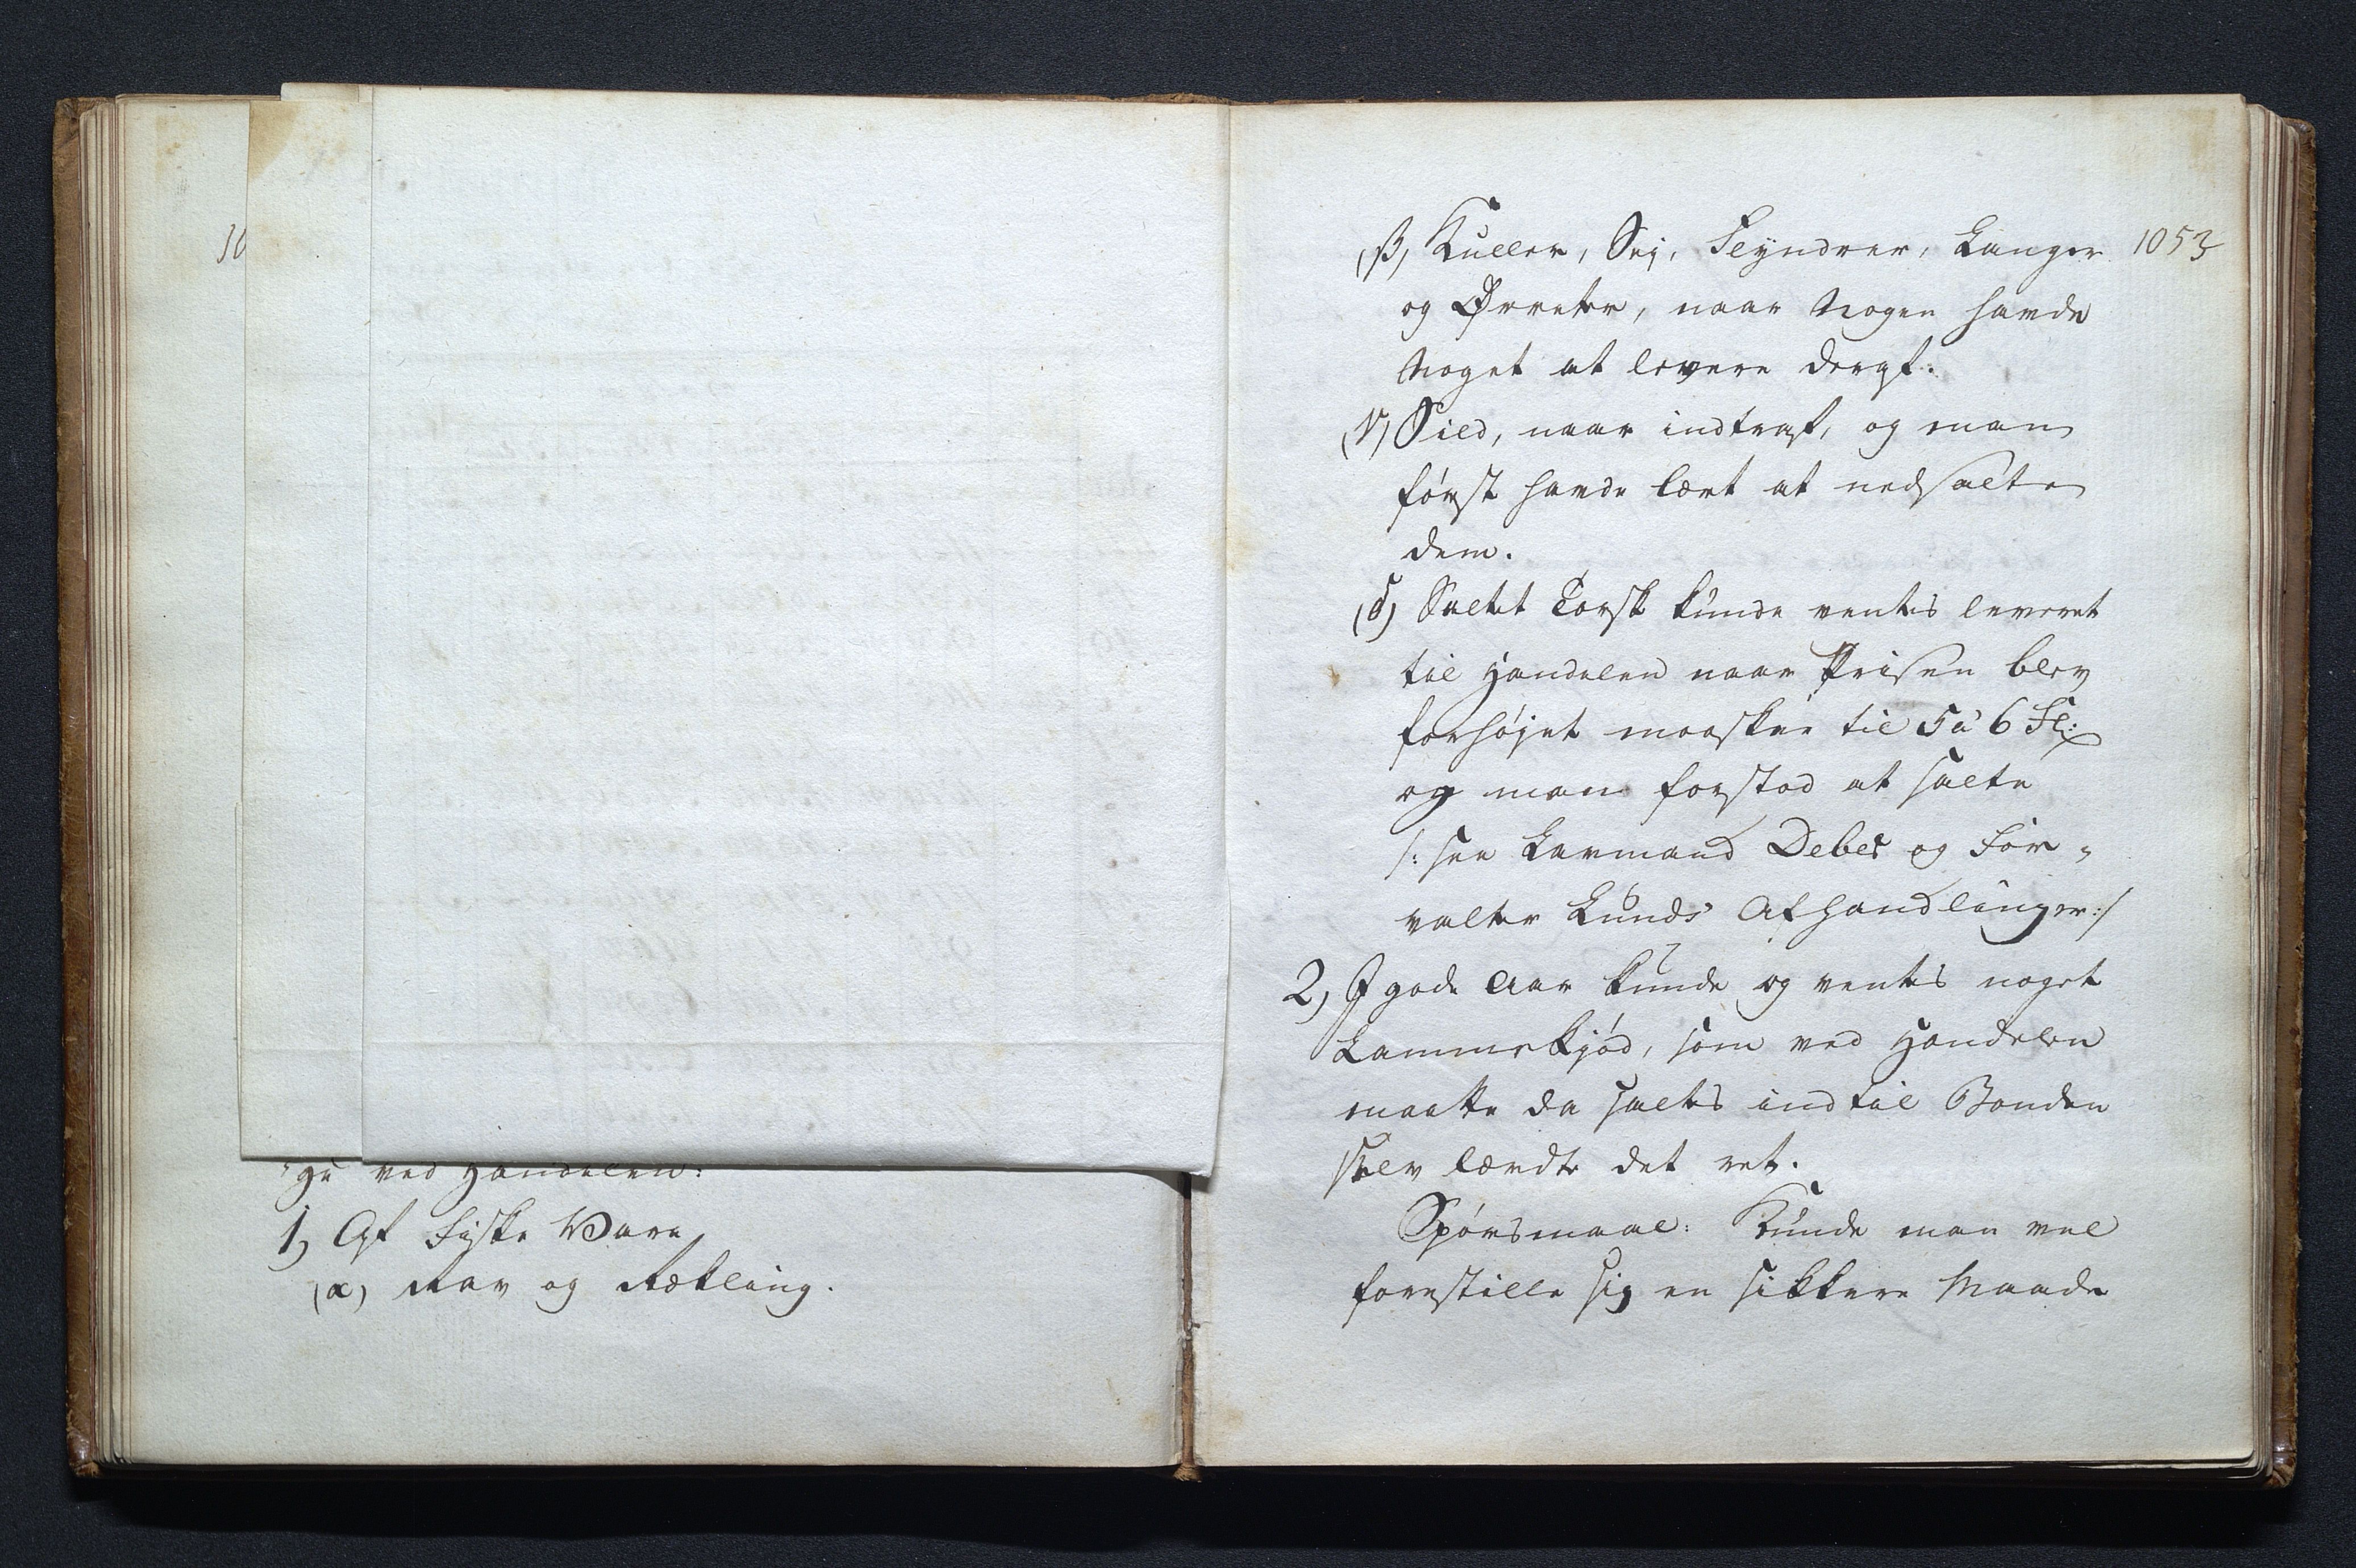 ge ved Handelen:
1, Af Fiske Vare
(α) Rav og Rækling.
1053
(β, Kuller, Sej, Flyndrer, Langer
og Ørreter, naar Nogen havde
Noget at levere deraf.
(γ) Sild, naar indtraf, og man
først havde lært at nedsalte
dem.
(δ) Saltet Torsk kunde ventes leveret
til Handelen naar Prisen blev
forhøjet maaskee til 5 à 6 Sk:
og man forstod at salte
/: see Lavmand Debes og For-
valter Lunds Afhandlinger :/
2, I gode Aar kunde og ventes noget
Lammekjød, som ved Handelen
maatte da saltes indtil Bonden
selv lærdte det ret.
Spørsmaal: Kunde man vel
forestille sig en sikkere Maade